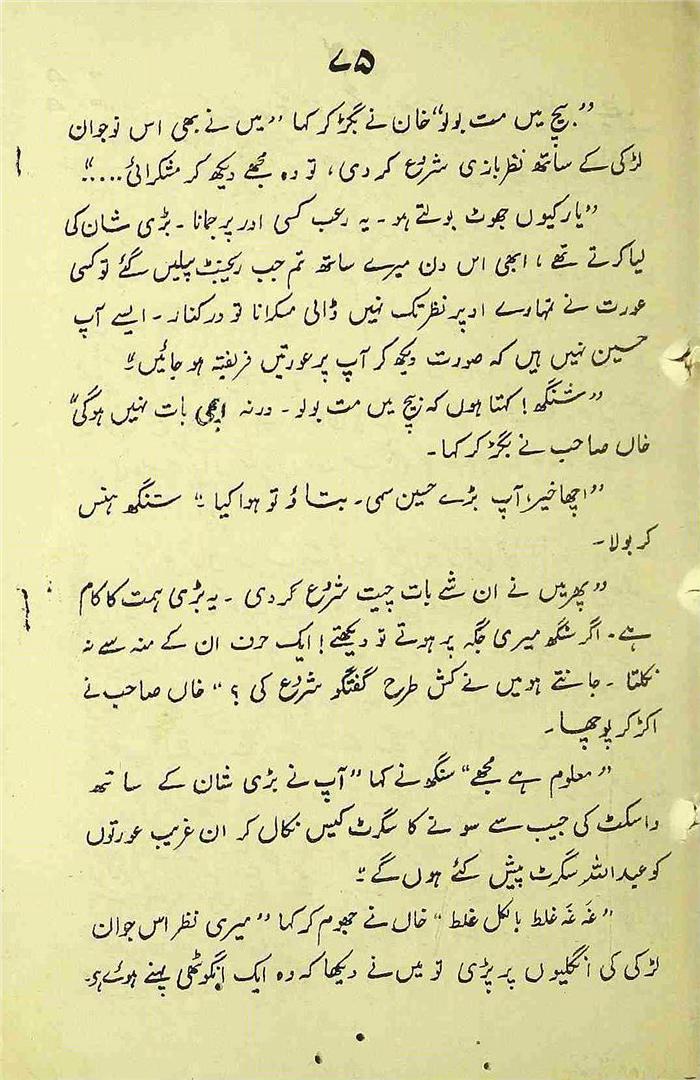 ۷۵
”بیچ میں مت بولو“ خان نے بگڑ کر کہا ”میں نے بھی اس نوجوان
لڑکی کے ساتھ نظر بازی شروع کر دی، تو وہ مجھے دیکھ کر مسکرائی.....“
”یار کیوں جھوٹ بولتے ہو۔ یہ رعب کسی اور پر جمانا۔ بڑی شان کی
لیا کرتے تھے، ابھی اس دن میرے ساتھ تم جب ریجنٹ پیلیس گئے تو کسی
عورت نے تمہارے اوپر نظر تک نہیں ڈالی مسکرانا تو درکنار۔ ایسے آپ
حسین نہیں ہیں کہ صورت دیکھ کر آپ پر عورتیں فریفتہ ہو جائیں“۔
”سنگھ! کہتا ہوں کہ بیچ میں مت بولو۔ ورنہ اچھی بات نہیں ہوگی“
خاں صاحب نے بگڑ کر کہا۔
”اچھا خیر، آپ بڑے حسین سہی۔ بتاؤ تو ہوا کیا۔“ سنگھ ہنس
کر بولا۔
”پھر میں نے ان سے بات چیت شروع کر دی۔ یہ بڑی ہمت کا کام
ہے۔ اگر سنگھ میری جگہ پر ہوتے تو دیکھتے! ایک حرف ان کے منہ سے نہ
نکلتا۔ جانتے ہو میں نے کس طرح گفتگو شروع کی؟“ خاں صاحب نے
اکڑ کر پوچھا۔
”معلوم ہے مجھے“ سنگھ نے کہا ”آپ نے بڑی شان کے ساتھ
واسکٹ کی جیب سے سونے کا سگرٹ کیس نکال کر ان غریب عورتوں
کو عبداللہ سگرٹ پیش کئے ہوں گے“۔
”غَہ غَہ غلط بالکل غلط“ خاں نے جھوم کر کہا ”میری نظر اس جوان
لڑکی کی انگلیوں پر پڑی تو میں نے دیکھا کہ وہ ایک انگوٹھی پہنے ہوئے ہے۔